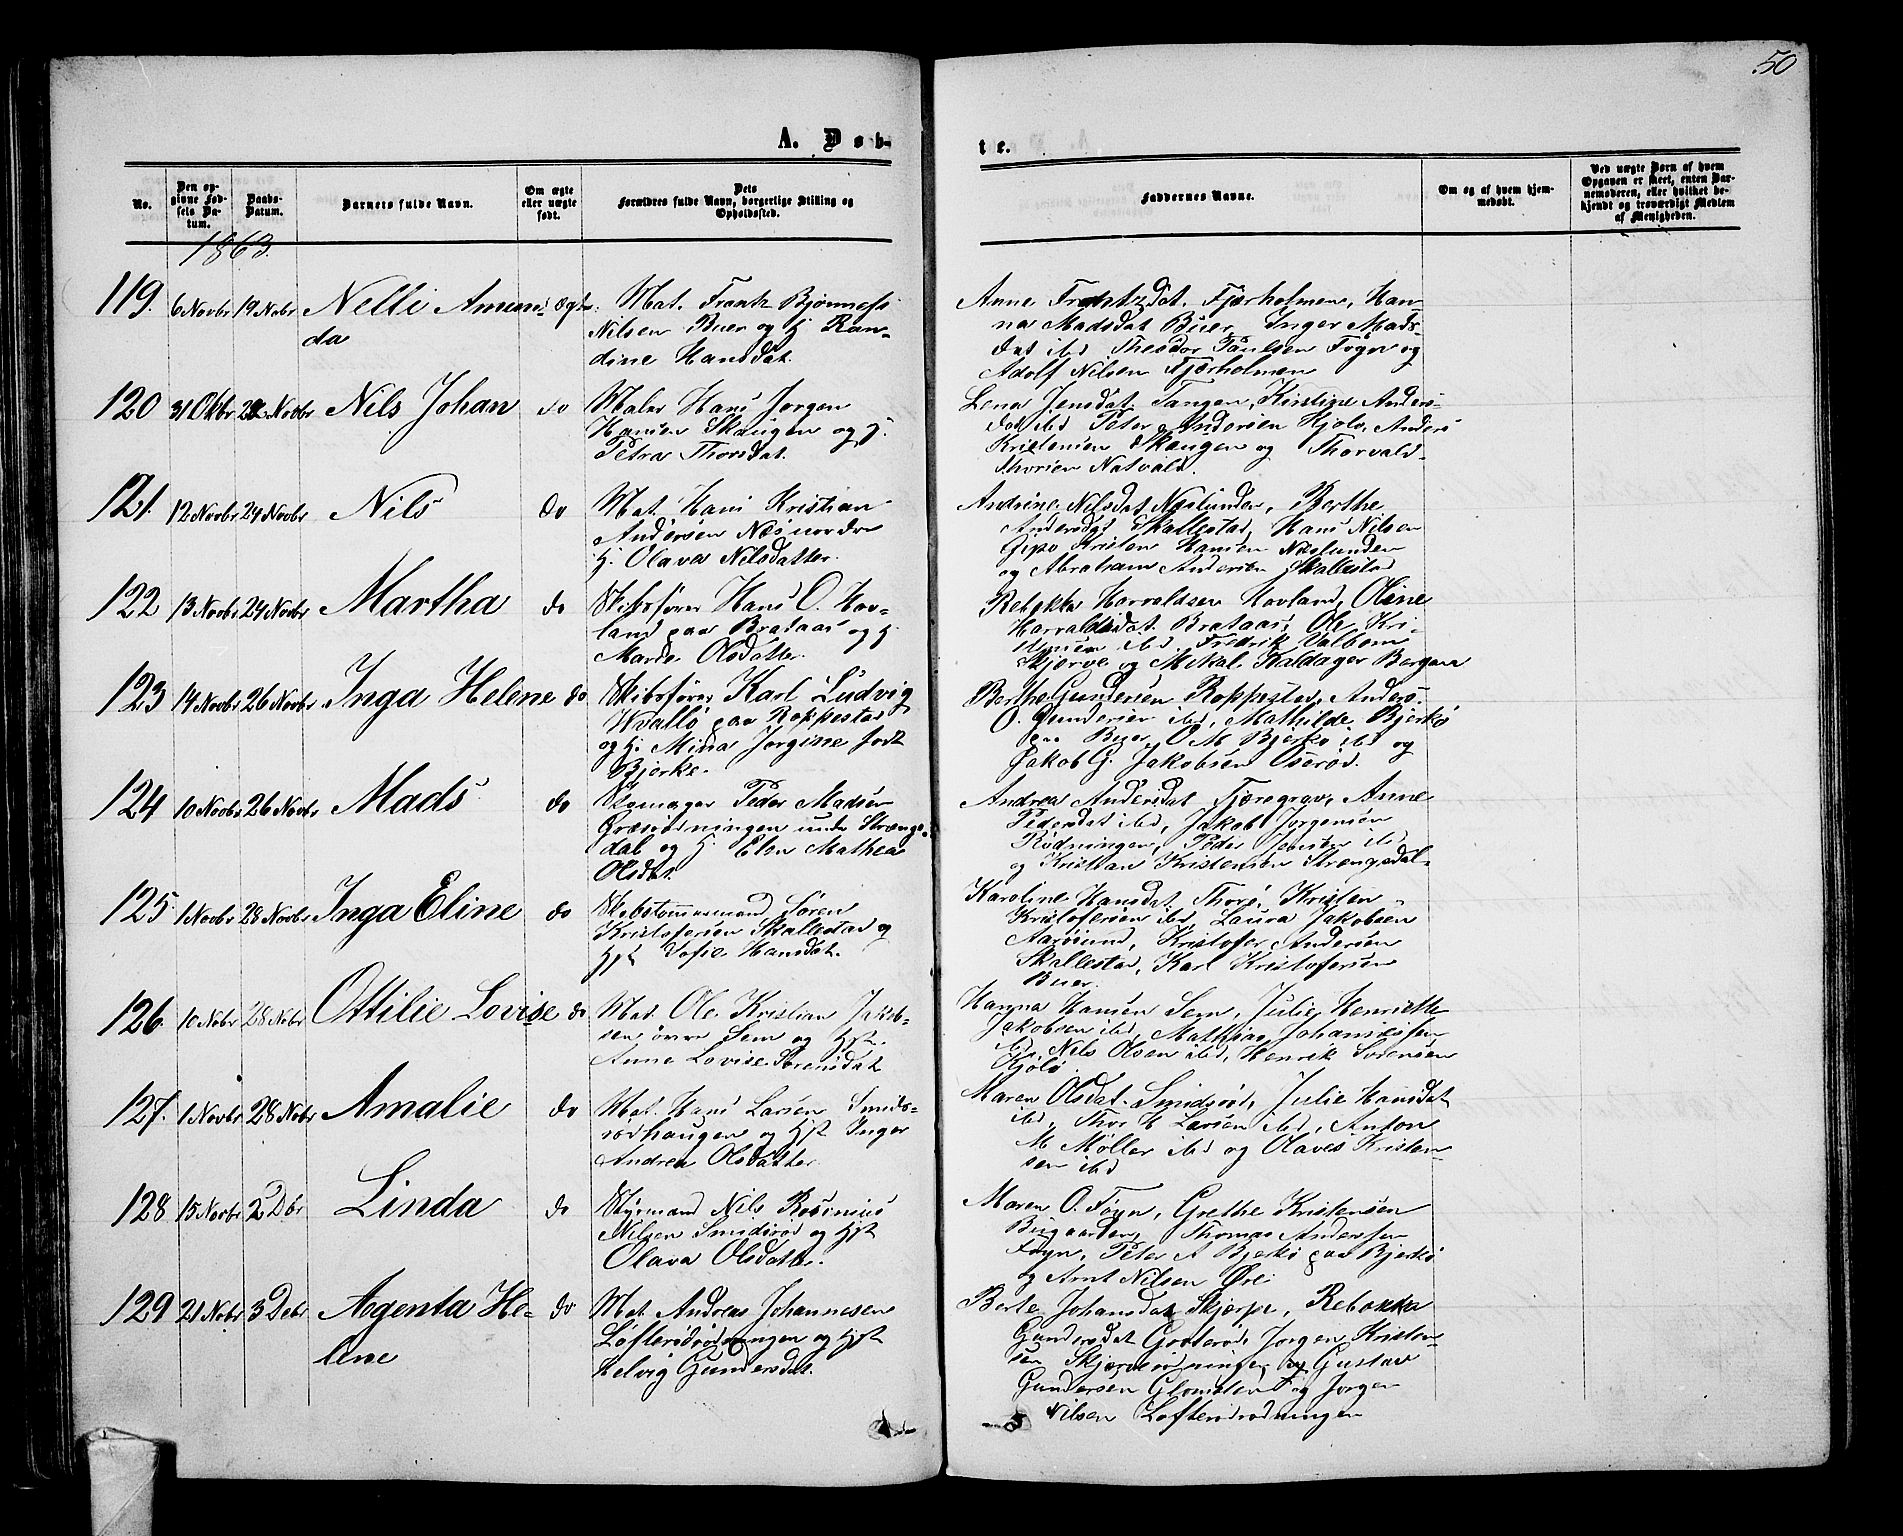 50
A. Døb-
te.
No.
Den op-
givne Fød-
sels Da-
tum.
Daabs-
Datum.
Barnets fulde Navn.
Om ægte
eller uægte
født.
Dets
Forældres fulde Navn, borgerlige Stilling og
Opholdssted.
Faddernes Navne.
Om og af hvem hjem-
medøbt.
Ved uægte Børn af hvem
Opgaven er skeet, enten Bar-
nemoderen, eller hvilket be-
kjendt og troværdigt Medlem
af Menigheden.
1863.
119. 6 Novbr 19 Nobr Nelli Aman- Ægte
da
Mat. Frantz Bjønness
Nilsen Buer og H. Ran-
dine Hansdat.
Anne Frantzdat. Fjærholmen, Han-
na Madsdat Buer, Inger Mads-
dat ibd Theodor Paulsen Føyn og
Adolf Nilsen Fjærholmen
120 31 Okbr 22 Novbr Nils Johan do
Maler Hans Jørgen
Hansen Skaugen og H.
Petra Thorsdat.
Lena Jensdat Tangen, Kirstine Anders-
dat ibd Peter Andersen Hjolø, Anders
Kristensen Skaugen og Thorvald
Thorsen Natvald.
121. 12 Novbr 24 Novbr Nils do
Mat Hans Kristian
Andersen Næs nordre
H. Olava Nilsdatter.
Andrine Nilsdat Næslunden, Berthe
Andersdat Skallestad, Hans Nilsen
Gipø Kristen Hansen Næslunden
og Abraham Andersen Skallestad
122 13 Novbr 24 Novbr Martha do
Skibsfører Hans O. Hov-
land paa Brataas og H.
Maria Olsdatter.
Rebekka Harvaldsen Hovland, Oline
Harvaldsdat Brataas, Ole Kri-
stensen ibd. Fredrik Valbom
Skjerve og Mikal Kaldager Bergan
123 14 Novbr 26 Novbr Inga Helene do
Skibsfører Karl Ludvig
Wrallø paa Roppestad
og H. Mina Jørgine født
Bjerke.
Berthe Gundersen Roppestad, Anders
O. Gundersen ibd, Mathilde Bjerkø
paa Buer, O M Bjerkø ibd og
Jakob G. Jakobsen Oserød.
124 10 Novbr 26 Novbr Mads do
Skomager Peder Madsen
Græsrødningen under Strængs-
dal og H. Elen Mathea
Olsdat.
Andrea Andersdat Fjæregrav, Anne
Pedersdat ibd, Jakob Jørgensen
Rødningen, Peder Jensen ib
og Kristian Kristensen Strængsdal
125 1 Novbr 28 Novbr Inga Eline do
Skibstømmermand Søren
Kristofersen Skallestad og
Hst Sofie Hansdat.
Karoline Hansdat Thorø, Kristen
Kristofersen ibd, Laura Jakobsen
Aarøsund, Kristofer Andersen
Skallestad, Karl Kristofersen
Buer.
126. 10 Nobr 28 Nobr Ottilie Lovise do
Mat. Ole Kristian Jakob-
sen øvre Sem og Hst.
Anne Lovise Sørensdat
Hanna Hansen Sem, Julie Henriette
Jakobsen ibd, Mathias Johannessen
ibd, Nils Olsen ibd, Henrik Sørensen
Hjolø
127. 1 Novbr 28 Nobr Amalie do
Mat. Hans Larsen Smids-
rødhaugen og Hst Inger
Andrea Olsdatter
Maren Olsdat Smidsrød, Julie Hansdat
ibd, Thor H Larsen ibd, Anton
M Møller ibd og Olaves Kristen-
sen ibd
128 15 Novbr 2 Dbr Linda do
Styrmand Nils Rosenius
Nilsen Smidsrød og Hst
Olava Olsdatter.
Maren O. Føyn, Grethe Kristensen
Bugaarden, Thomas Anderssen
Føyn, Peter A Bjerkø paa Bjerkø
og Arnt Nilsen Øre
129 21 Nobr 3 Debr Agenta He- do
lene
Mat Andreas Johannesen
Løfterødrødningen og Hst
Helvig Gundersdat.
Berte Johansdat Skjerve, Rebekka
Gundersdat Gooterød, Jørgen Kristen-
sen Skjerverødningen, og Gustav
Gundersen Glomsten og Jørgen
Nilsen Løfterødrødningen